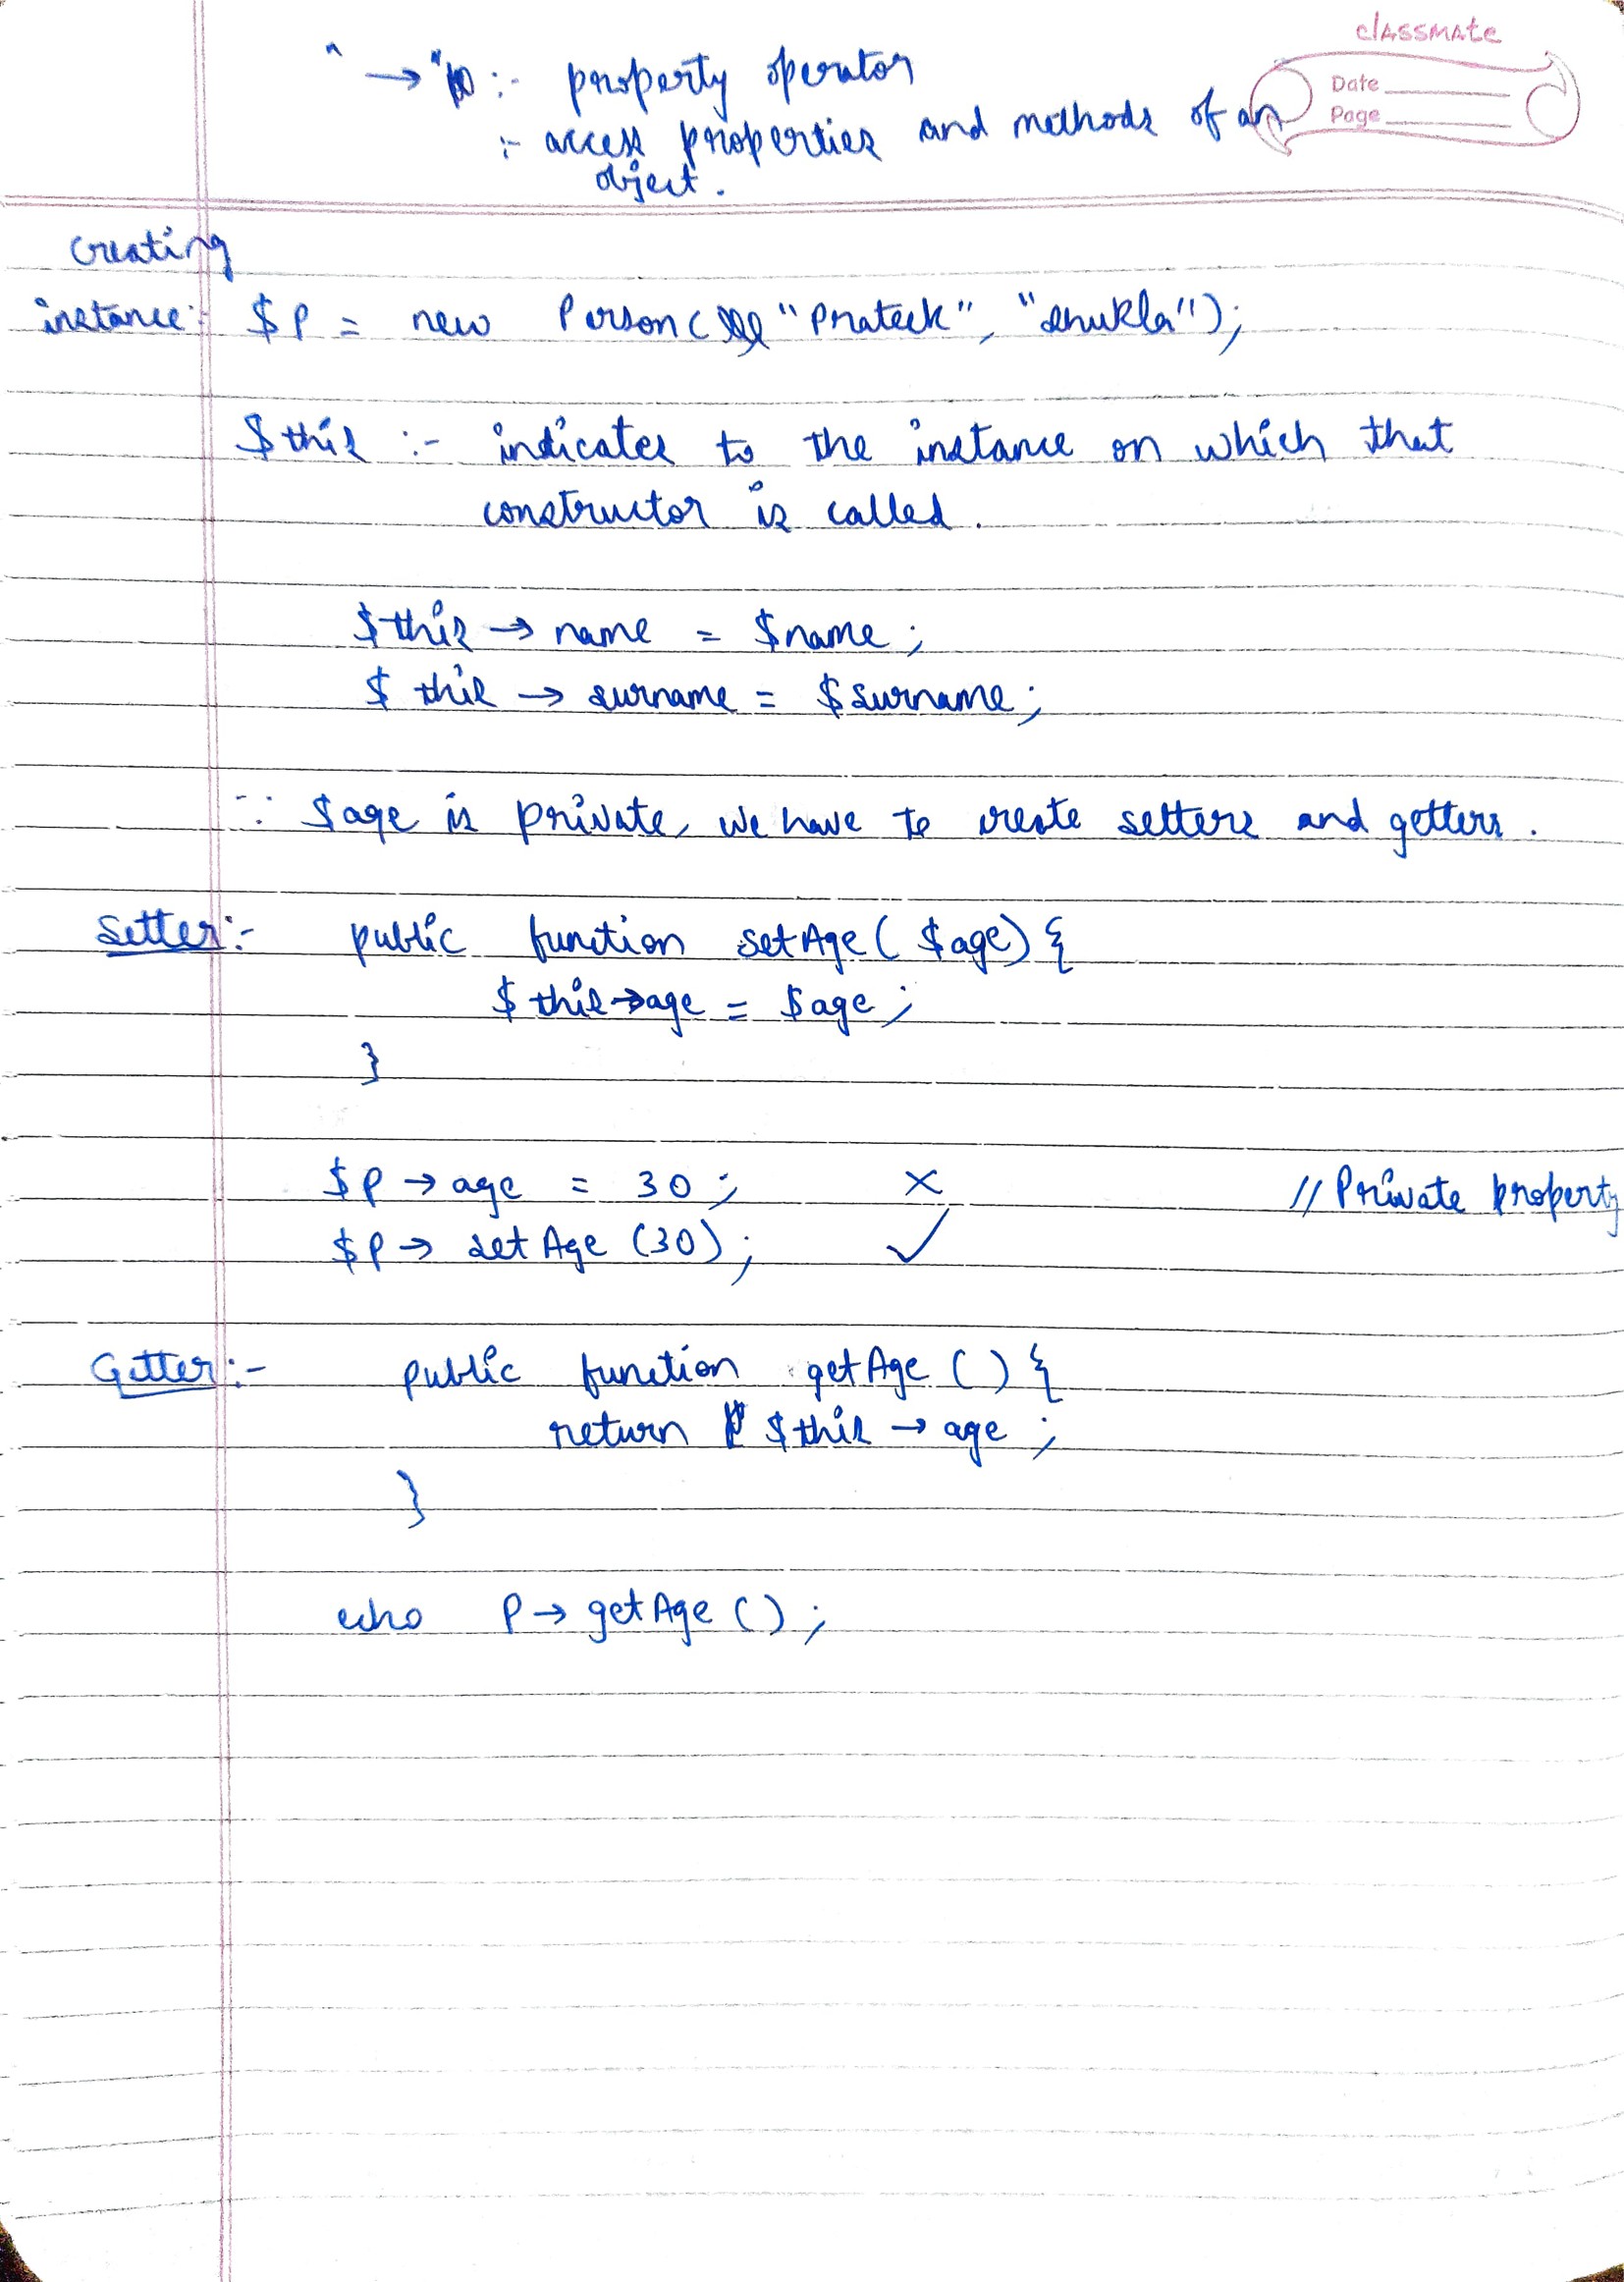 classmate
Date
Page
"→" :- property operator
:- access properties and methods of an
object.
Creating
instance:- $p = new Person( "Prateek", "Shukla");
$this :- indicates to the instance on which that
constructor is called.
$this → name = $name;
$this → surname = $surname;
∵ $age is private, we have to create setters and getters.
Setter:- public function setAge( $age) {
$this→age = $age;
}
$p → age = 30; × // Private property
$p → setAge (30); ✓
Getter:- public function getAge () {
return $this → age ;
}
echo p→ getAge ();